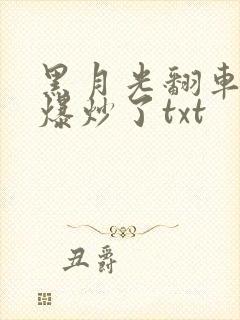 黑月光翻車
爆炒了txt
丑爵